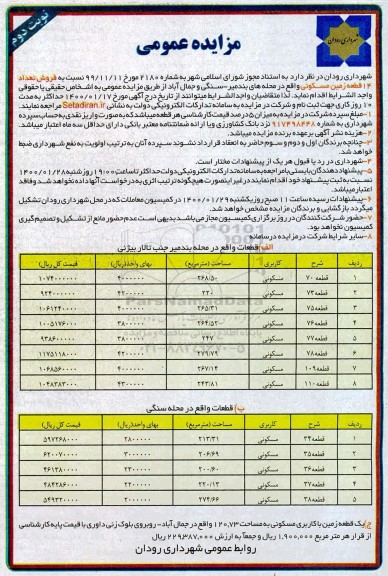 نوبت دوم
مزایده عمومی
شهرداری رودان
شهرداری رودان در نظر دارد به استناد مجوز شورای اسلامی شهر به شماره ۲۱۸۰ مورخ ۹۹/۱۱/۱۱ نسبت به فروش تعداد
۱۴ قطعه زمین مسکونی واقع در محله های بندمیر-سنگی و جمال آباد از طریق مزایده عمومی به اشخاص حقیقی یا حقوقی
واجد الشرایط اقدام نماید. لذا متقاضیان واجد الشرایط میتوانند از تاریخ درج آگهی مورخ ۱۴۰۰/۰۱/۱۷ حداکثر به مدت
۱۰ روز کاری جهت ثبت نام و شرکت در مزایده به سامانه تدارکات الکترونیکی دولت به نشانی Setadiran.ir مراجعه نمایند.
۱-مبلغ سپرده شرکت در مزایده به میزان ۵ درصد قیمت کارشناسی هر قطعه میباشد که به صورت واریز نقدی به حساب سپرده
شهرداری به شماره ۹۱۷۴۹۸۴۴۸ نزد بانک کشاورزی و یا ارائه ضمانتنامه معتبر بانکی دارای حداقل سه ماه اعتبار میباشد.
۲-هزینه نشر آگهی برعهده برنده مزایده میباشد.
۳-چنانچه برندگان اول و دوم و سوم حاضر به انعقاد قرارداد نشوند سپرده آنان به ترتیب اولویت به نفع شهرداری ضبط
خواهد شد.
۴-شهرداری در رد یا قبول هر یک از پیشنهادات مختار است.
۵-پیشنهاد دهندگان بایستی با مراجعه به سامانه تدارکات الکترونیکی دولت حداکثر تا ساعت ۱۹:۰۰ روز شنبه ۱۴۰۰/۰۱/۲۸
نسبت به ثبت پیشنهاد خود اقدام نمایند در غیر اینصورت هیچگونه ترتیب اثری به درخواست آنها داده نخواهد شد و فاقد
اعتبار میباشد.
۶-پیشنهادات رسیده ساعت ۱۱ صبح روز یکشنبه ۱۴۰۰/۰۱/۲۹ در کمیسیون معاملات که در محل شهرداری رودان تشکیل
میگردد بازگشایی و برندگان مزایده مشخص خواهند شد.
۷-حضور شرکت کنندگان در روز برگزاری کمیسیون مجاز می باشد بدیهی است عدم حضور مانع از تشکیل و تصمیم گیری
کمیسیون نخواهد بود.
۸-سایر شرایط شرکت در مزایده در سامانه
الف) قطعات واقع در محله بندمیر جنب تالار بیژنی
ردیف شرح کاربری مساحت (مترمربع) بهای واحد(ریال) قیمت کل (ریال)
۱ قطعه ۷۰ مسکونی ۲۶۸/۵۰ ۴۰۰۰۰۰۰ ۱۰۷۴۰۰۰۰۰۰
۲ قطعه ۷۲ مسکونی ۲۲۰ ۴۲۰۰۰۰۰ ۹۲۴۰۰۰۰۰۰
۳ قطعه ۷۵ مسکونی ۲۶۵/۳۱ ۴۰۰۰۰۰۰ ۱۰۶۱۲۴۰۰۰۰
۴ قطعه ۷۶ مسکونی ۲۶۴/۵۲ ۳۸۰۰۰۰۰ ۱۰۰۵۱۷۶۰۰۰
۵ قطعه ۷۷ مسکونی ۲۴۷ ۳۸۰۰۰۰۰ ۹۳۸۶۰۰۰۰۰
۶ قطعه ۷۸ مسکونی ۲۷۹/۷۹ ۴۲۰۰۰۰۰ ۱۱۷۵۱۱۸۰۰۰
۷ قطعه ۱۰۹ مسکونی ۲۶۷/۱۴ ۴۰۰۰۰۰۰ ۱۰۶۸۵۶۰۰۰۰
۸ قطعه ۱۱۰ مسکونی ۲۴۳/۸۱ ۴۳۰۰۰۰۰ ۱۰۴۸۳۸۳۰۰۰
ب) قطعات واقع در محله سنگی
ردیف شرح کاربری مساحت (مترمربع) بهای واحد(ریال) قیمت کل (ریال)
۱ قطعه ۳۴ مسکونی ۲۱۳/۳۱ ۲۸۰۰۰۰۰ ۵۹۷۲۶۸۰۰۰
۲ قطعه ۳۵ مسکونی ۲۰۶/۶۹ ۳۰۰۰۰۰۰ ۶۲۰۰۷۰۰۰۰
۳ قطعه ۳۶ مسکونی ۲۰۰/۶۰ ۲۳۰۰۰۰۰ ۴۶۱۳۸۰۰۰۰
۴ قطعه ۳۷ مسکونی ۲۲۰/۱۳ ۲۲۰۰۰۰۰ ۴۸۴۲۸۶۰۰۰
۵ قطعه ۳۸ مسکونی ۲۷۴/۶۶ ۲۰۰۰۰۰۰ ۵۴۹۳۲۰۰۰۰
ج) یک قطعه زمین با کاربری مسکونی به مساحت ۱۲۰,۷۳ واقع در جمال آباد - روبروی بلوک زنی داوری با قیمت پایه کارشناسی
از قرار هر متر مربع ۱,۹۰۰,۰۰۰ ریال و جمعاً به ارزش ۲۲۹,۳۸۷,۰۰۰ ریال
روابط عمومی شهرداری رودان